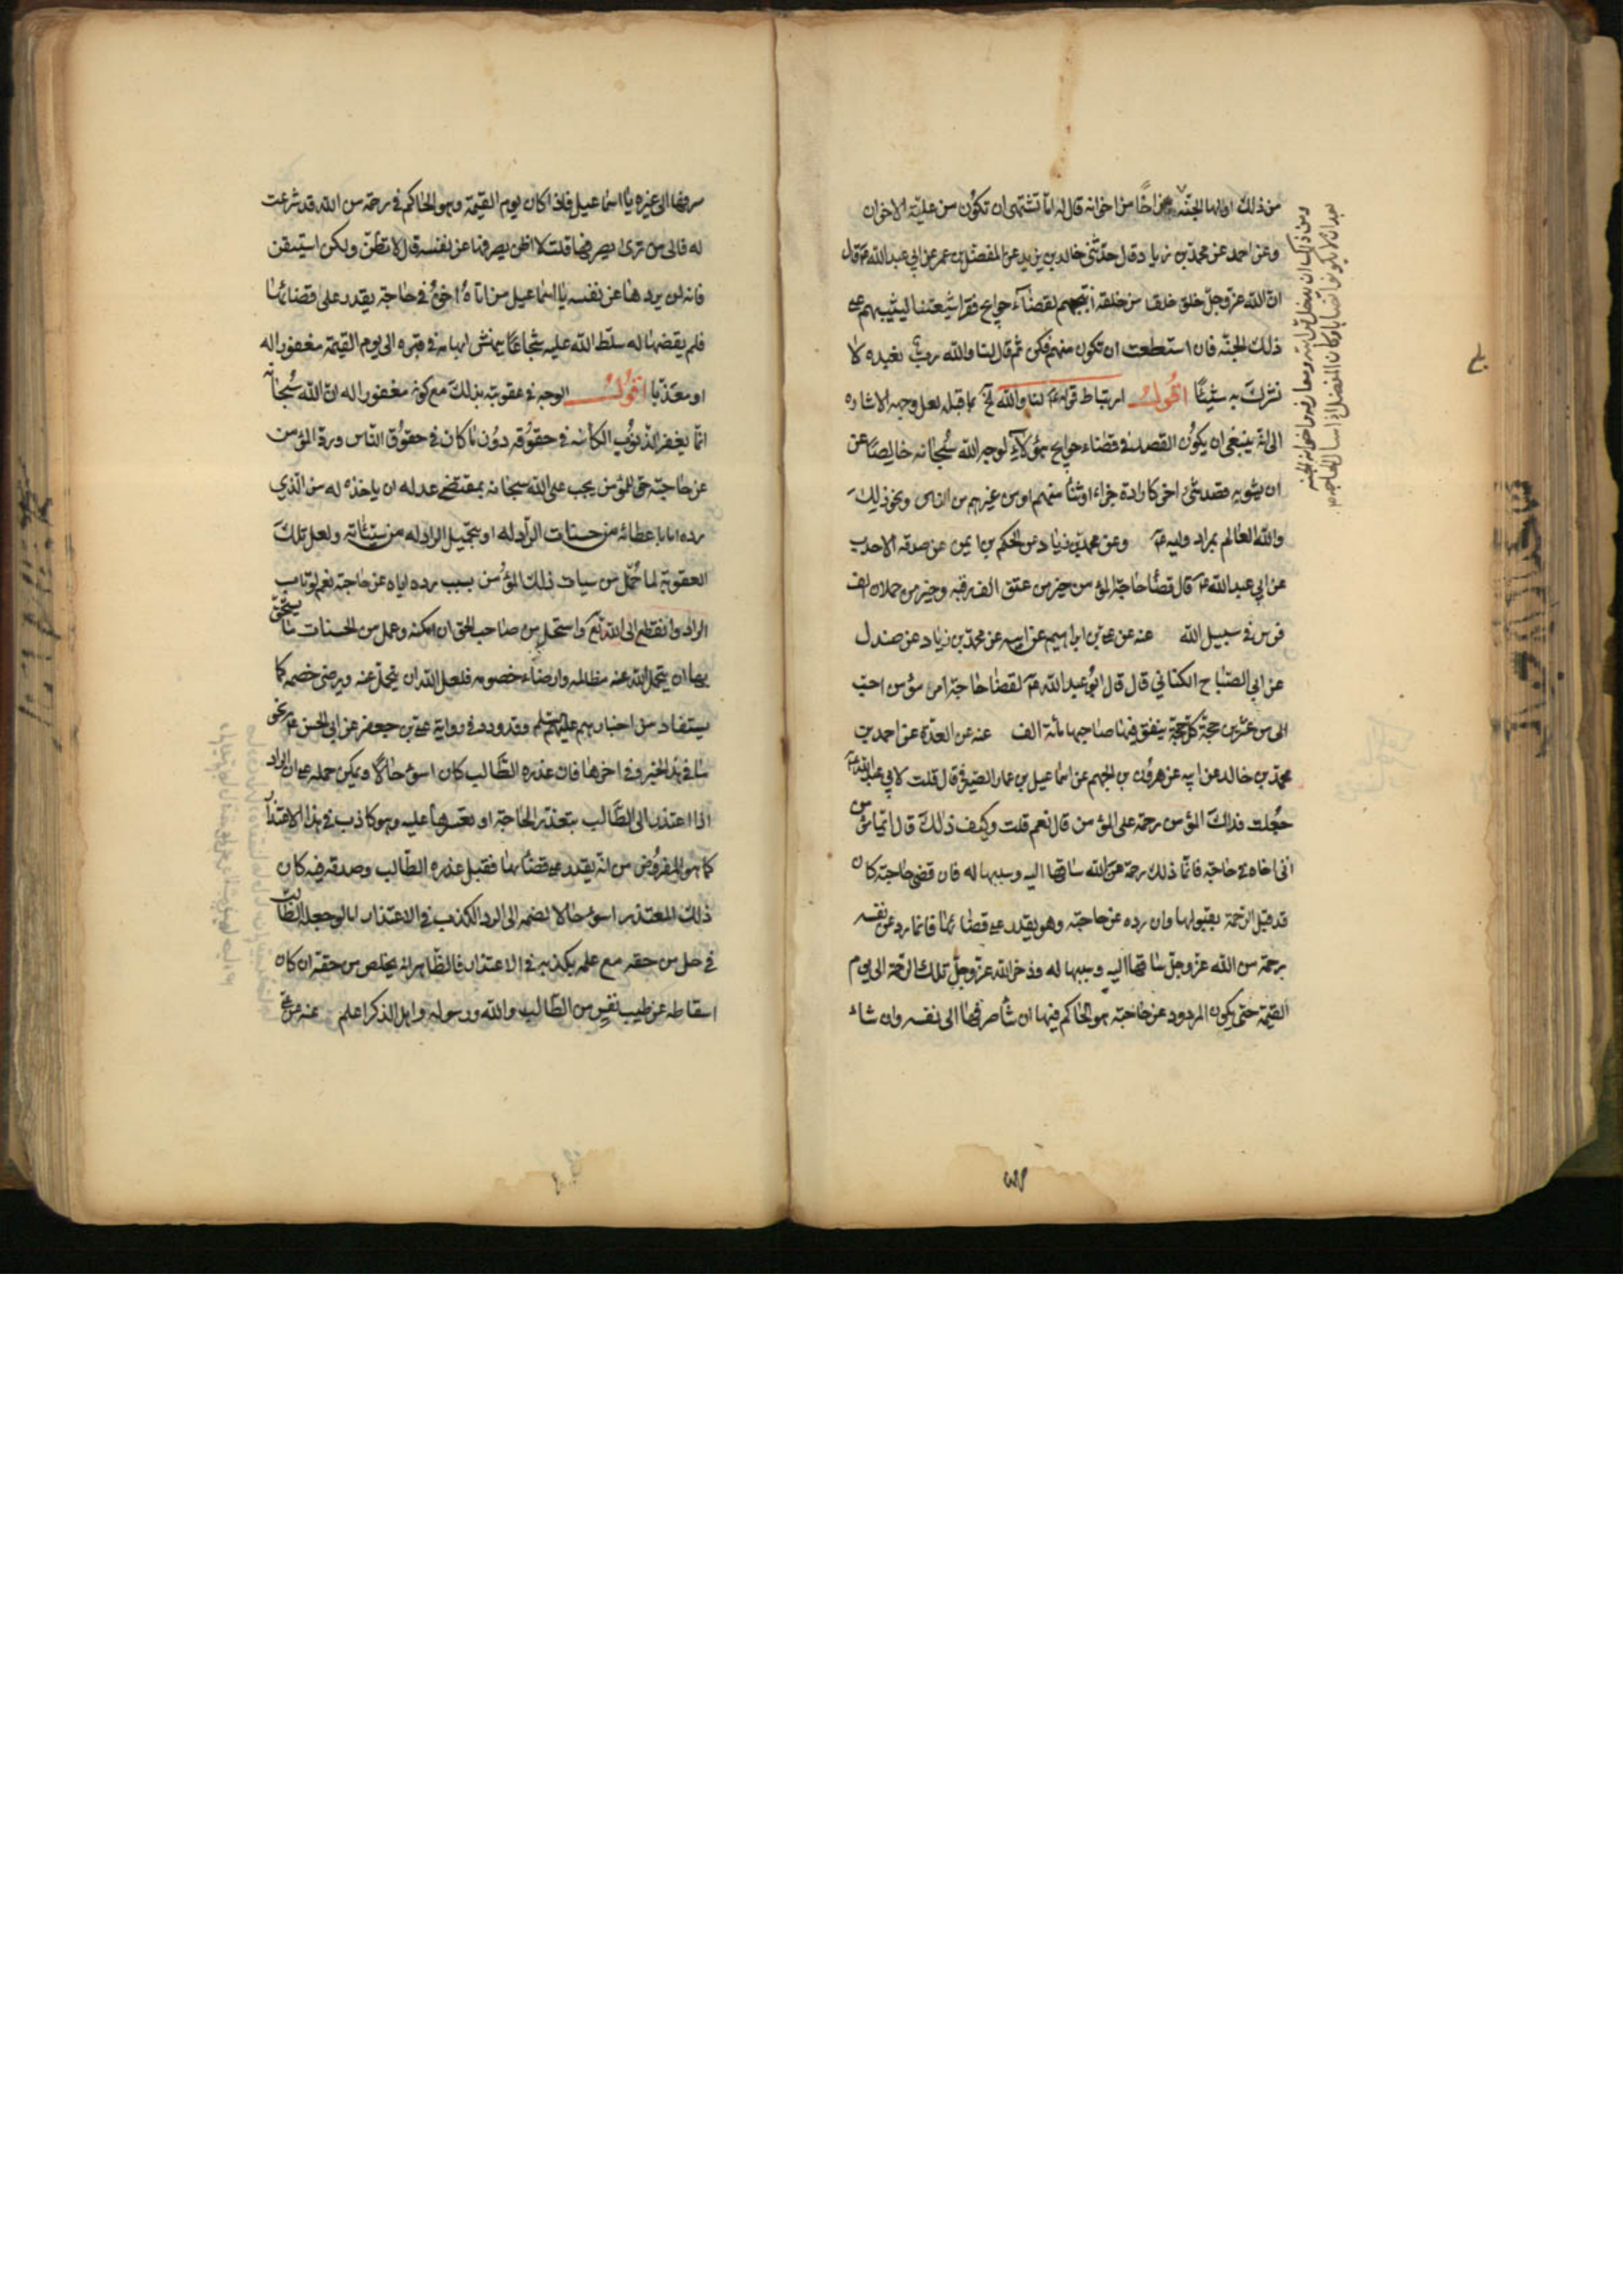 من ذلك اولها الجنة اخا من اخوانه قال له اما تشتهى ان تكون من علية الاخوان
وعن احمد عن محمد بن زياد قال حدثنى خالد بن يزيد عن المفضل بن عمر عن ابي عبد الله ع قال
ان الله عز وجل خلق خلقا من خلقه انتجبهم لقضاء حوايج فقرا شيعتنا ليثيبهم على
ذلك الجنة فان استطعت ان تكون منهم فكن ثم قال لنا والله رب نعبده لا
نشرك به شيئا اقول ارتباط قوله ع لنا والله الخ بما قبله لعل وجهه الاشاره
الى انه ينبغى ان يكون القصد فى قضاء حوايج هؤلاء لوجه الله سبحانه خالصا عن
ان يشوبه قصد شئ اخر كارادة جزاء او ثناء منهم او من غيرهم من الناس ونحو ذلك
والله العالم بمراد وليه ع وعن محمد بن زياد عن الحكم بن ايمن عن صدقه الاحدب
عن ابي عبد الله ع قال قضا حاجة المؤمن خير من عتق الف رقبه وخير من حملان الف
فرس فى سبيل الله عنه عن على بن ابراهيم عن ابيه عن محمد بن زياد عن صندل
عن ابي الصباح الكناني قال قال ابو عبد الله ع لقضا حاجة امرء مؤمن احب
الى من عشرين حجة كل حجة ينفق فيها صاحبها مائة الف عنه عن العدة عن احمد بن
محمد بن خالد عن ابيه عن هرون بن الجهم عن اسماعيل بن عمار الصيرفى قال قلت لابي عبد الله ع
جعلت فداك المؤمن رحمة على المؤمن قال نعم قلت وكيف ذلك قال ايما مؤمن
اتى اخاه فى حاجة فانما ذلك رحمة من الله ساقها اليه وسببها له فان قضى حاجته كان
قد قبل الرحمة بقبولها وان رده عن حاجته وهو يقدر على قضائها فانما رد عن نفسه
برحمة من الله عز وجل ساقها اليه وسببها له وذخر الله عز وجل تلك الرحمة الى يوم
القيمة حتى يكون المردود عن حاجته هو الحاكم فيها ان شاء صرفها الى نفسه وان شاء
صرفها الى غيره يا اسماعيل فاذا كان يوم القيمة وهو الحاكم فى رحمة من الله قد شرعت
له فالى من ترى يصرفها قلت لا اظن يصرفها عن نفسه قال لا تظن ولكن استيقن
فانه لن يردها عن نفسه يا اسماعيل من اتاه اخوه فى حاجة يقدر على قضائها
فلم يقضها له سلط الله عليه شجاعا ينهش ابهامه فى قبره الى يوم القيمة مغفورا له
او معذبا اقول الوجه فى عقوبته بذلك مع كونه مغفورا له ان الله سبحانه
انما يغفر الذنوب الكائنه فى حقوقه دون ما كان فى حقوق الناس ورد المؤمن
عن حاجته حق للمؤمن يجب على الله سبحانه بمقتضى عدله ان ياخذه له من الذي
رده اما باعطائه من حسنات الراد له او بتحميل الراد له من سيئاته ولعل تلك
العقوبة لما تحمل من سيات ذلك المؤمن بسبب رده اياه عن حاجته نعم لو تاب
الراد وانقطع الى الله تع واستحل من صاحب الحق ان امكنه وعمل من الحسنات ما يستحق
بها ان يتحمل الله عنه مظالمه وارضاء خصومه فلعل الله ان يتحمل عنه ويرضى خصمه كما
يستفاد من اخبارهم عليهم السلم وقد ورد فى رواية على بن جعفر عن ابي الحسن ع نحو
ما فى هذا الخبر وفى اخرها فان عذره الطالب كان اسوء حالا ويمكن حمله على ان الراد
اذا اعتذر الى الطالب بتعذر الحاجة او تعسرها عليه وهو كاذب فى هذا الاعتذار
كما هو المفروض من انه يقدر على قضائها فقبل عذره الطالب وصدقه فيه كان
ذلك المعتذر اسوء حالا لضمه الى الرد الكذب فى الاعتذار اما لو جعله الطالب
فى حل من حقه مع علمه بكذبه فى الاعتذار فالظاهر انه يخلص من حقه ان كان
اسقاطه عن طيب نفس من الطالب والله ورسوله واهل الذكر اعلم عنه عن